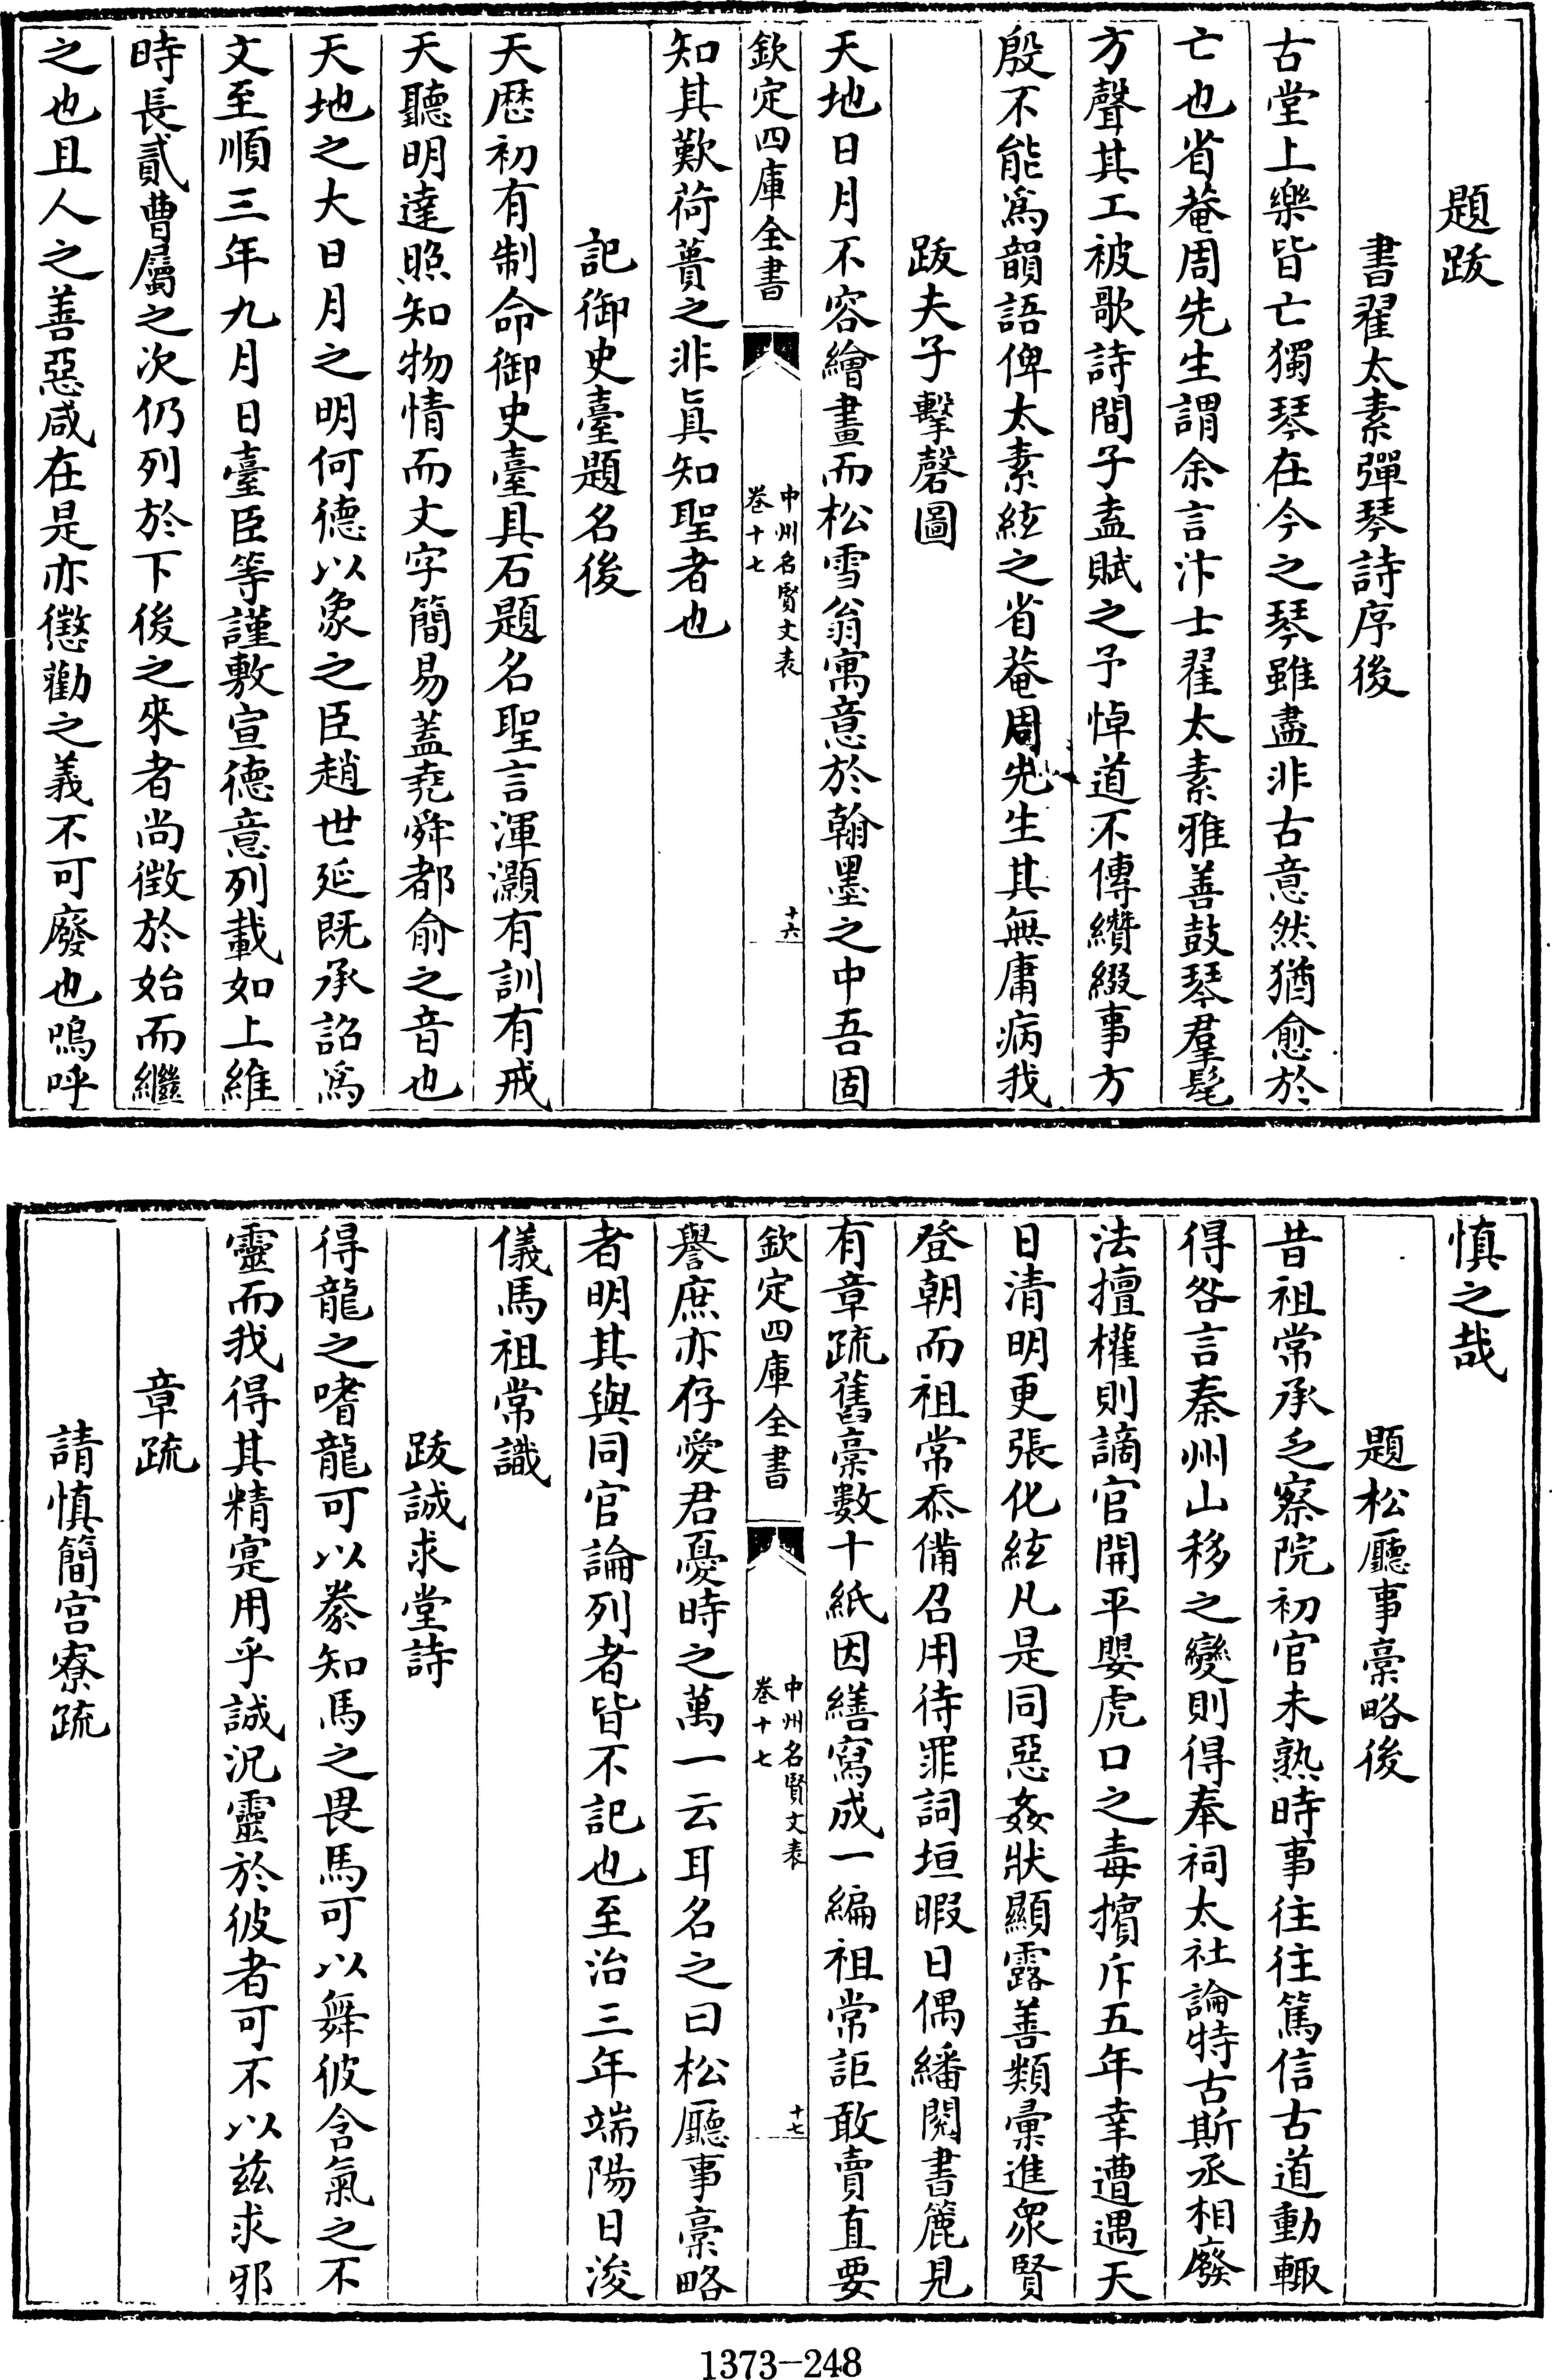 題跋
書翟太素彈琴詩序後
古堂上樂皆亡獨琴在今之琴雖盡非古意然猶愈於
亡也省菴周先生謂余言汴士翟太素雅善鼓琴羣髦
方聲其工被歌詩間子盍賦之予悼道不傳纘綴事方
殷不能爲韻語俾太素絃之省菴周先生其無庸病我
跋夫子擊磬圖
天地日月不容繪畫而松雪翁寓意於翰墨之中吾固
欽定四庫全書
中州名賢文表
卷十七
十六
知其歎荷蕢之非眞知聖者也
記御史臺題名後
天厯初有制命御史臺具石題名聖言渾灝有訓有戒
天聽明達照知物情而文字簡易蓋堯舜都俞之音也
天地之大日月之明何德以象之臣趙世延既承詔爲
文至順三年九月日臺臣等謹敷宣德意列載如上維
時長貳曹屬之次仍列於下後之來者尚徴於始而繼
之也且人之善惡咸在是亦懲勸之義不可廢也嗚呼
慎之哉
題松廳事稾略後
昔祖常承乏察院初官未熟時事往往篤信古道動輙
得咎言秦州山移之變則得奉祠太社論特古斯丞相廢
法擅權則謫官開平嬰虎口之毒擯斥五年幸遭遇天
日清明更張化絃凡是同惡姦狀顯露善類彚進衆賢
登朝而祖常忝備召用待罪詞垣暇日偶繙閱書簏見
有章疏舊稾數十紙因繕寫成一編祖常詎敢賣直要
欽定四庫全書
中州名賢文表
卷十七
十七
譽庶亦存愛君憂時之萬一云耳名之曰松廳事稾略
者明其與同官論列者皆不記也至治三年端陽日浚
儀馬祖常識
跋誠求堂詩
得龍之嗜龍可以豢知馬之畏馬可以舞彼含氣之不
靈而我得其精寔用乎誠況靈於彼者可不以兹求邪
章疏
請慎簡宫寮疏
1373-248